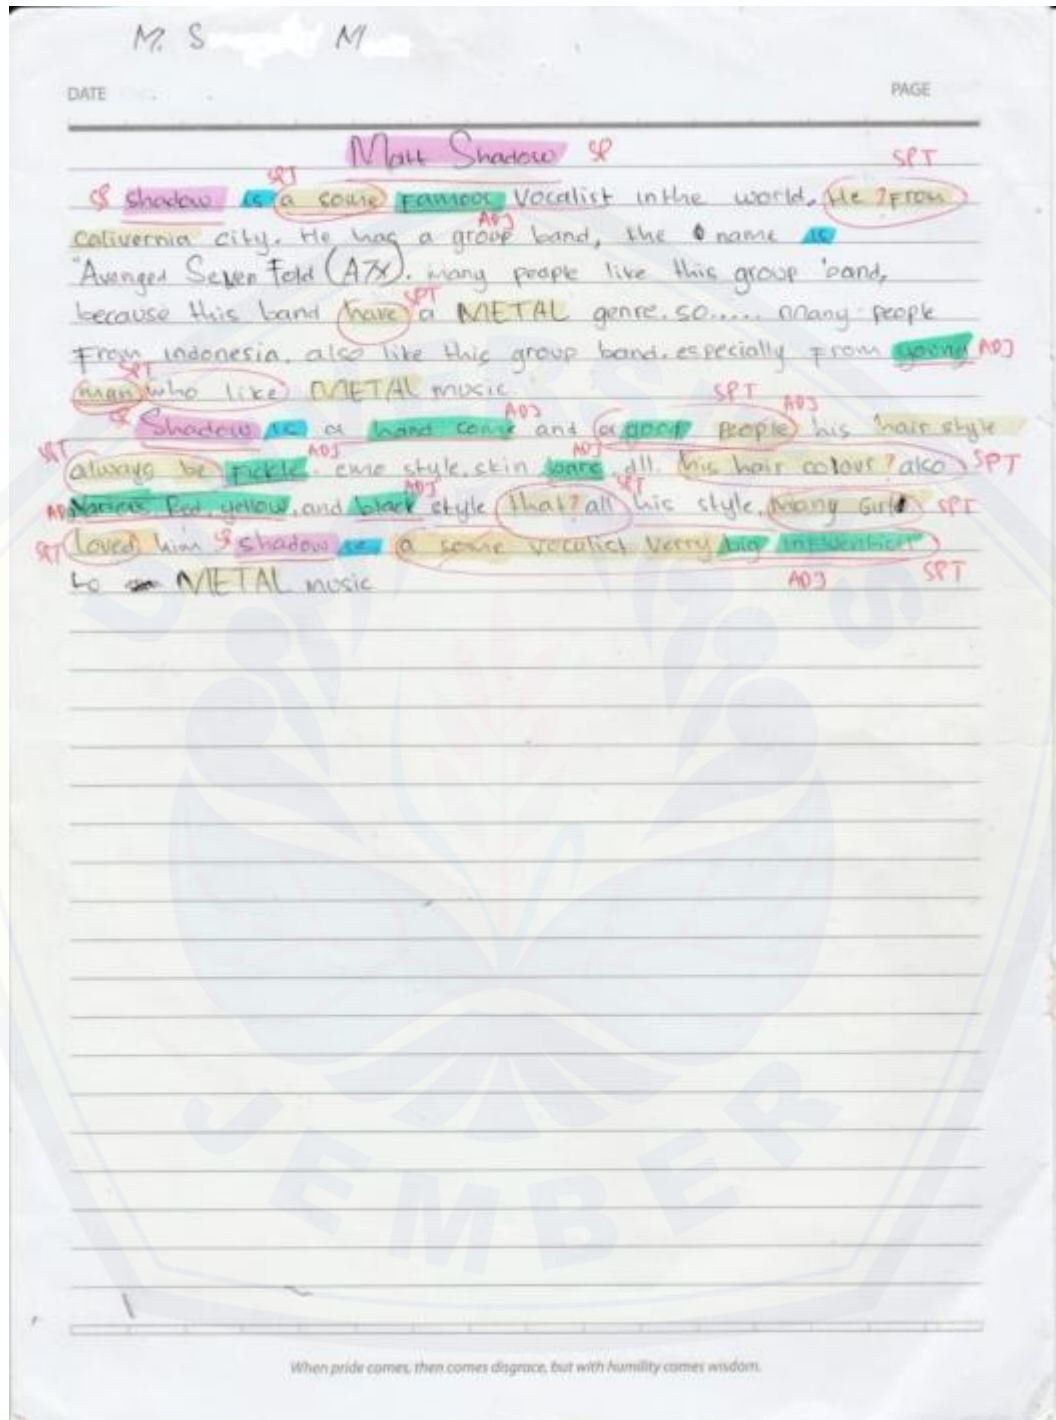 M. S M
DATE
PAGE
Matt Shadow SP
SPT SPT
SP Shadow is a some famous Vocalist in the world, He ? From
ADJ
calivernia city. He has a group band, the name is
"Avenged Seven Fold (A7X). Many people like this group band,
SPT
because this band have a METAL genre. so..... many people
From indonesia. also like this group band. especially From young ADJ
SPT
man who like METAL music
SP ADJ SPT ADJ
Shadow is a hand come and a good people his hair style
SPT ADJ ADJ
always be fickle. emo style. skin bare. dll. his hair colour ? also SPT
ADJ SPT
Red, yellow, and black style that ? all his style. Many Girl SPT
SPT loved him SP shadow is a some vocalist Verry big
ADJ SPT
to METAL music
UNIVERSITAS
JEMBER
When pride comes, then comes disgrace, but with humility comes wisdom.